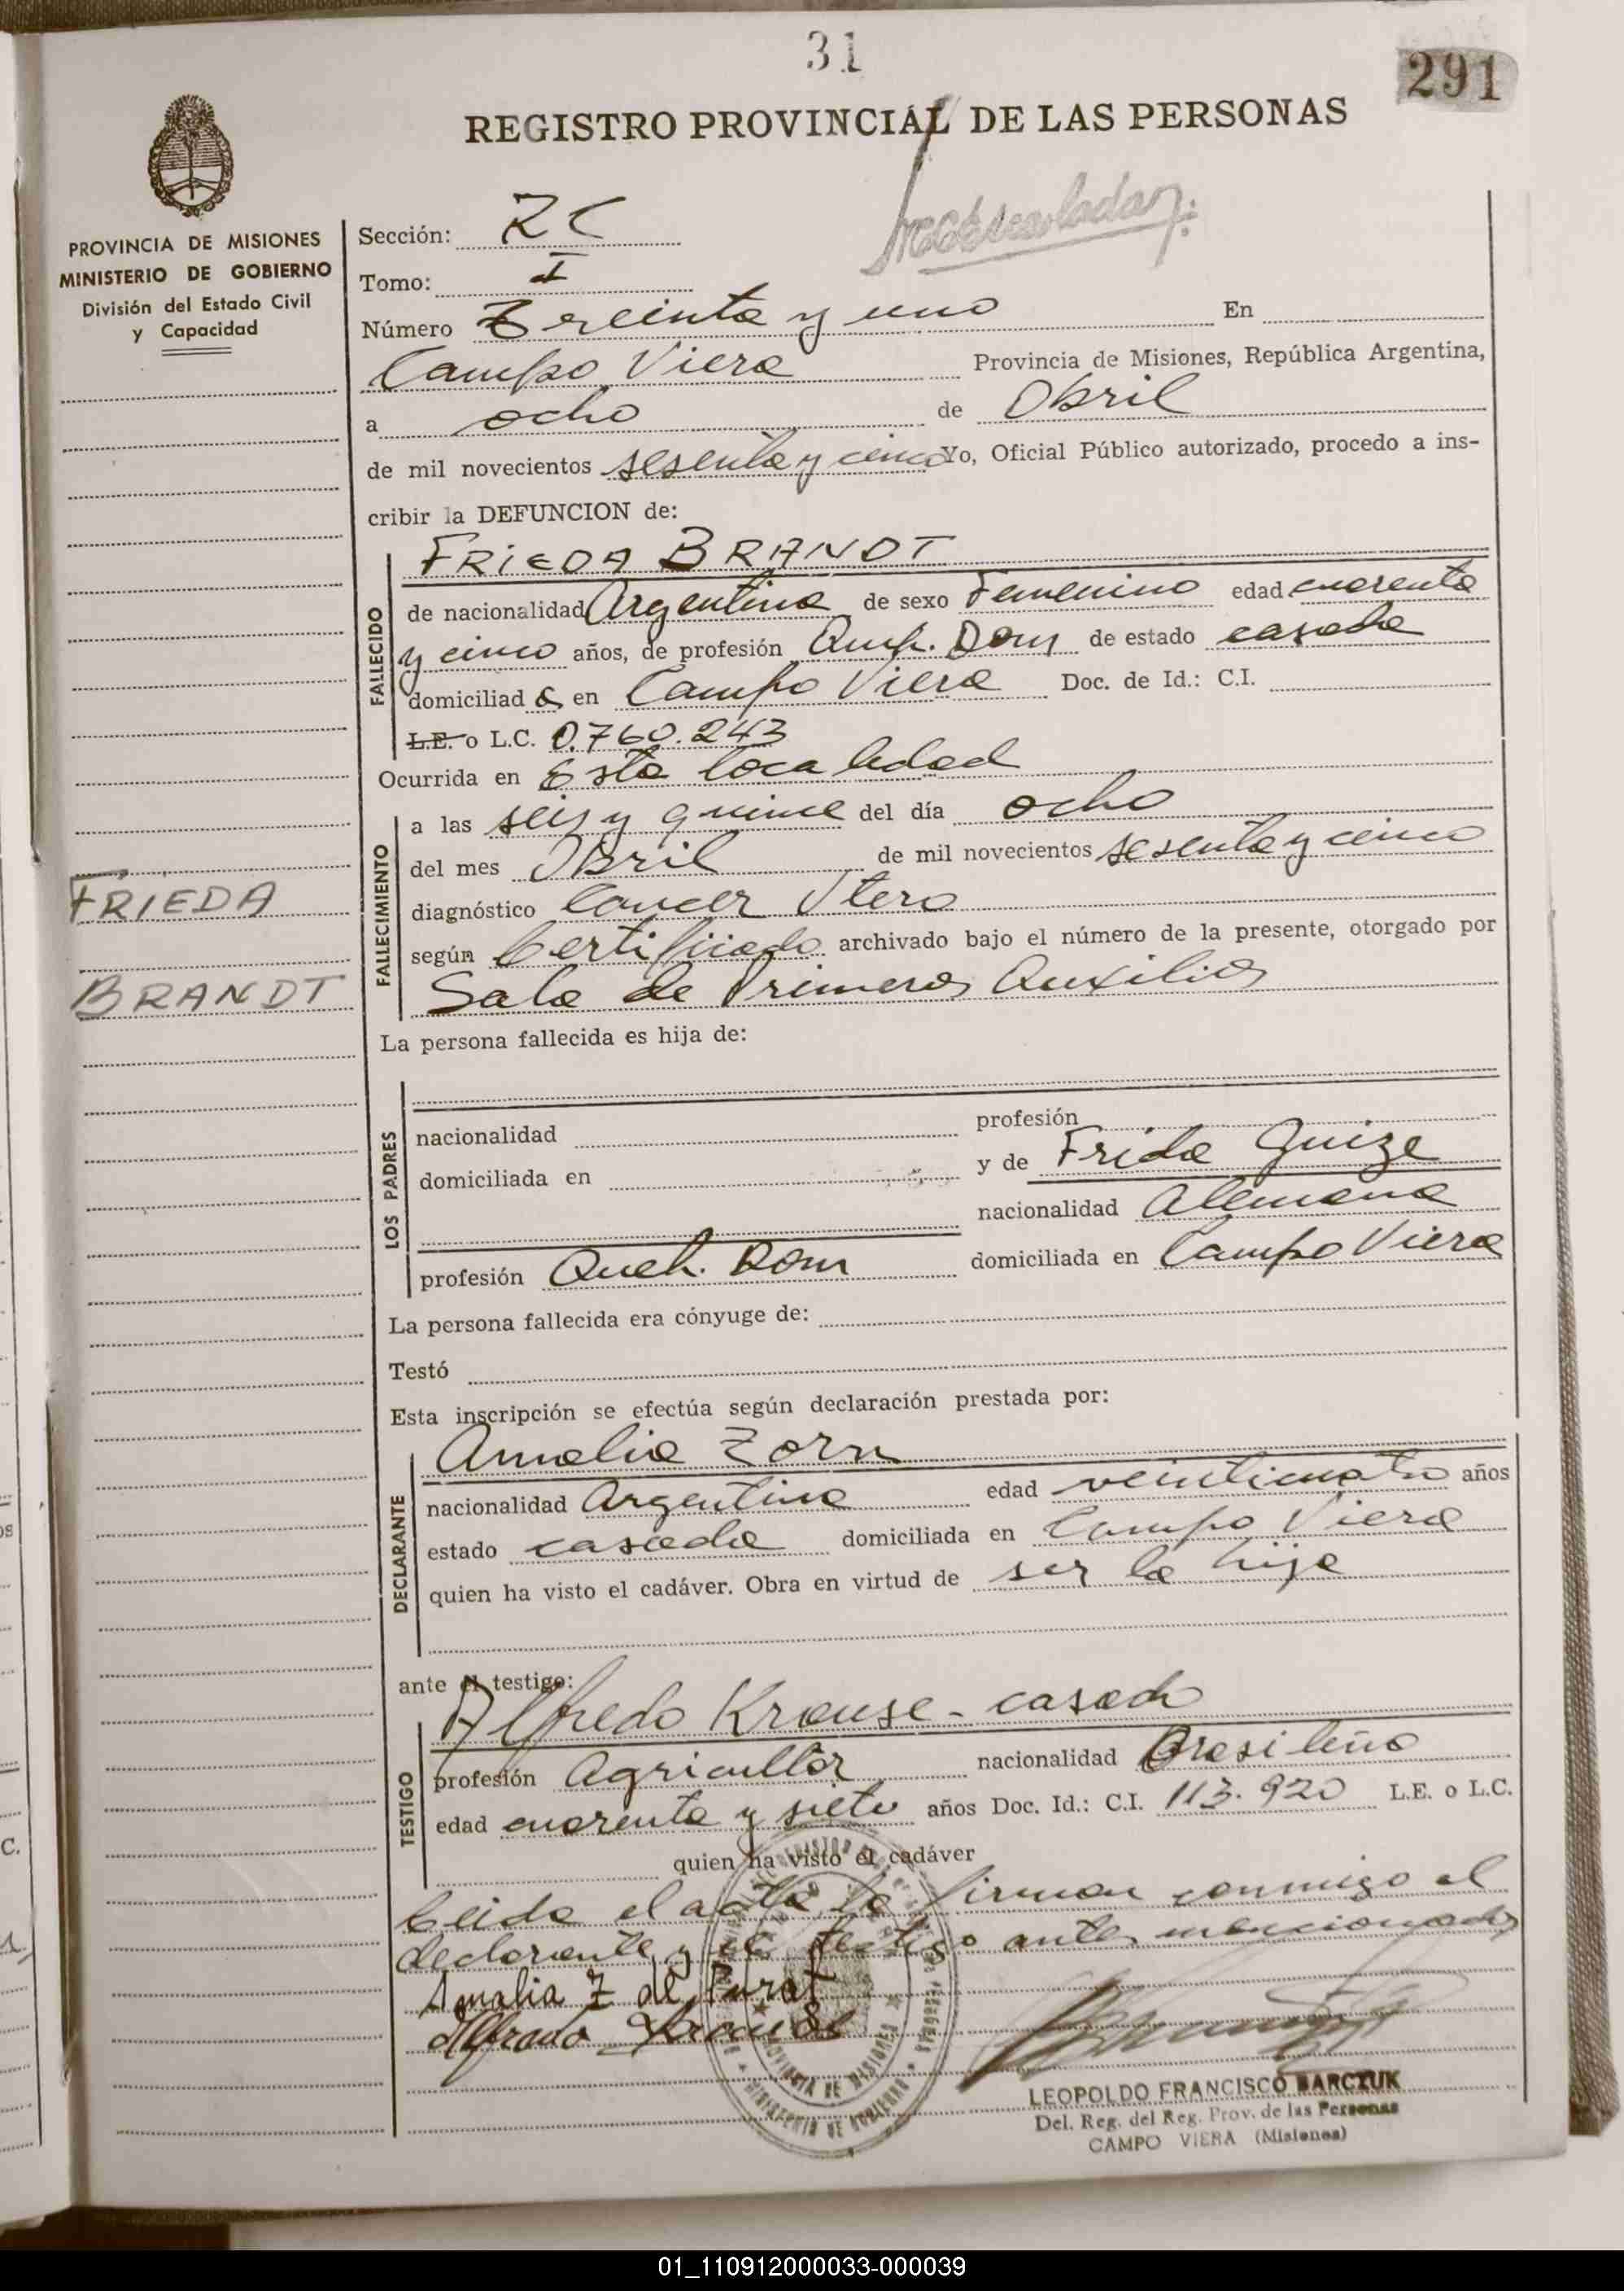 31
291
REGISTRO PROVINCIAL DE LAS PERSONAS
PROVINCIA DE MISIONES
MINISTERIO DE GOBIERNO
División del Estado Civil
y Capacidad
Sección: RC
Tomo: I
Número Treinta y uno En
Campo Viera Provincia de Misiones, República Argentina,
a ocho de Abril
de mil novecientos sesenta y cinco Yo, Oficial Público autorizado, procedo a ins-
cribir la DEFUNCION de:
FALLECIDO
FRIEDA BRANDT
de nacionalidad Argentina de sexo Femenino edad cuarenta
y cinco años, de profesión Que. Dom de estado casada
domiciliad a en Campo Viera Doc. de Id.: C.I.
L.E. o L.C. 0.760.243
Ocurrida en Esta localidad
FALLECIMIENTO
a las seis y quince del día ocho
del mes Abril de mil novecientos sesenta y cinco
diagnóstico Cancer Utero
según Certificado archivado bajo el número de la presente, otorgado por
Sala de Primeros Auxilios
FRIEDA
BRANDT
La persona fallecida es hija de:
LOS PADRES
nacionalidad profesión
domiciliada en y de Frida Guize
nacionalidad Alemana
profesión Queh. Dom domiciliada en Campo Viera
La persona fallecida era cónyuge de:
Testó
Esta inscripción se efectúa según declaración prestada por:
DECLARANTE
Amalia Zorn
nacionalidad Argentina edad veinticuatro años
estado casada domiciliada en Campo Viera
quien ha visto el cadáver. Obra en virtud de ser la hija
ante el testigo:
TESTIGO
Alfredo Krause - casado
profesión Agricultor nacionalidad Brasileño
edad cuarenta y siete años Doc. Id.: C.I. 113.920 L.E. o L.C.
quien ha visto el cadáver
Leida el acta la firman conmigo el
declarante y el testigo antes mencionados
Amalia Z de
Alfredo Krause
PROVINCIA DE MISIONES
MINISTERIO DE GOBIERNO
LEOPOLDO FRANCISCO BARCZUK
Del. Reg. del Reg. Prov. de las Personas
CAMPO VIERA (Misiones)
01_110912000033-000039